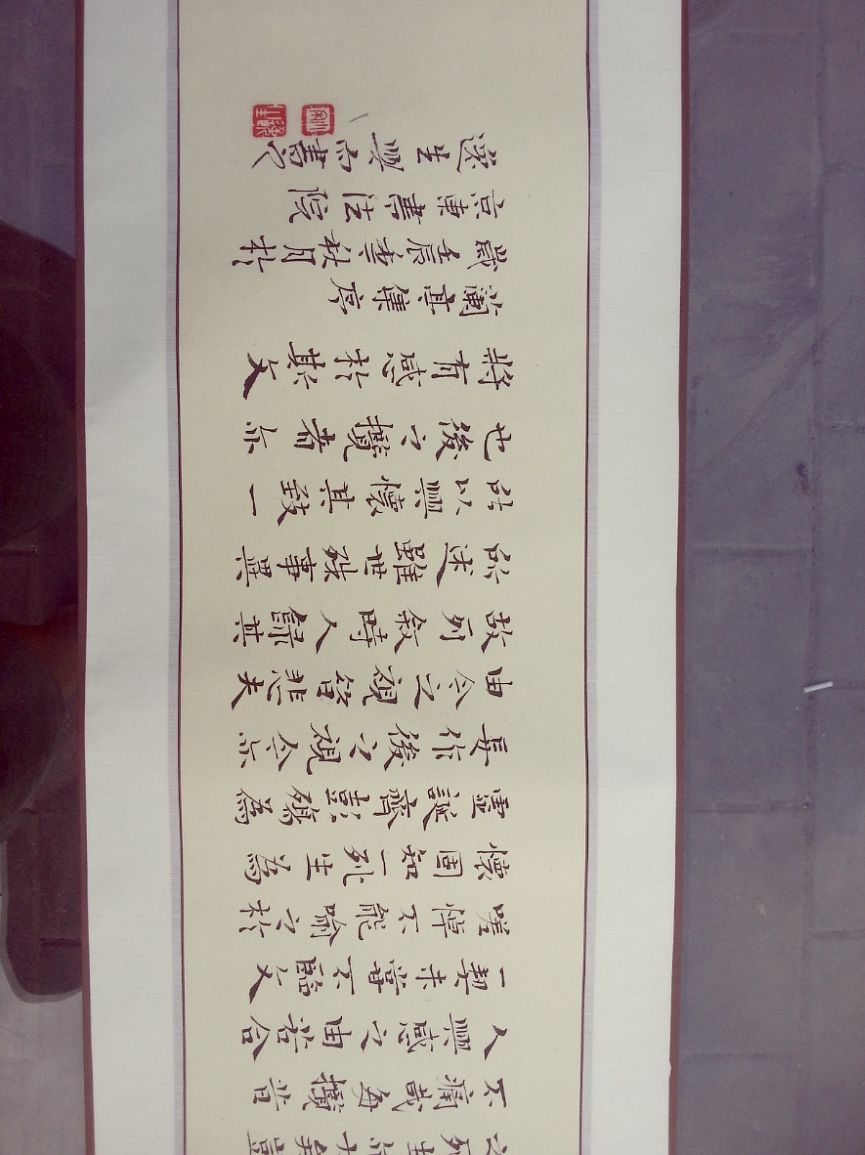 之死生亦大矣豈
不痛哉每攬昔
人興感之由若合
一契未嘗不臨文
嗟悼不能喻之於
懷固知一死生為
虛誕齊彭殤為
妄作後之視今亦
由今之視昔悲夫
故列敘時人錄其
所述雖世殊事異
所以興懷其致一
也後之攬者亦
將有感於斯文
蘭亭集序
歲壬辰季秋月於
京東書法院
逸生興而書之